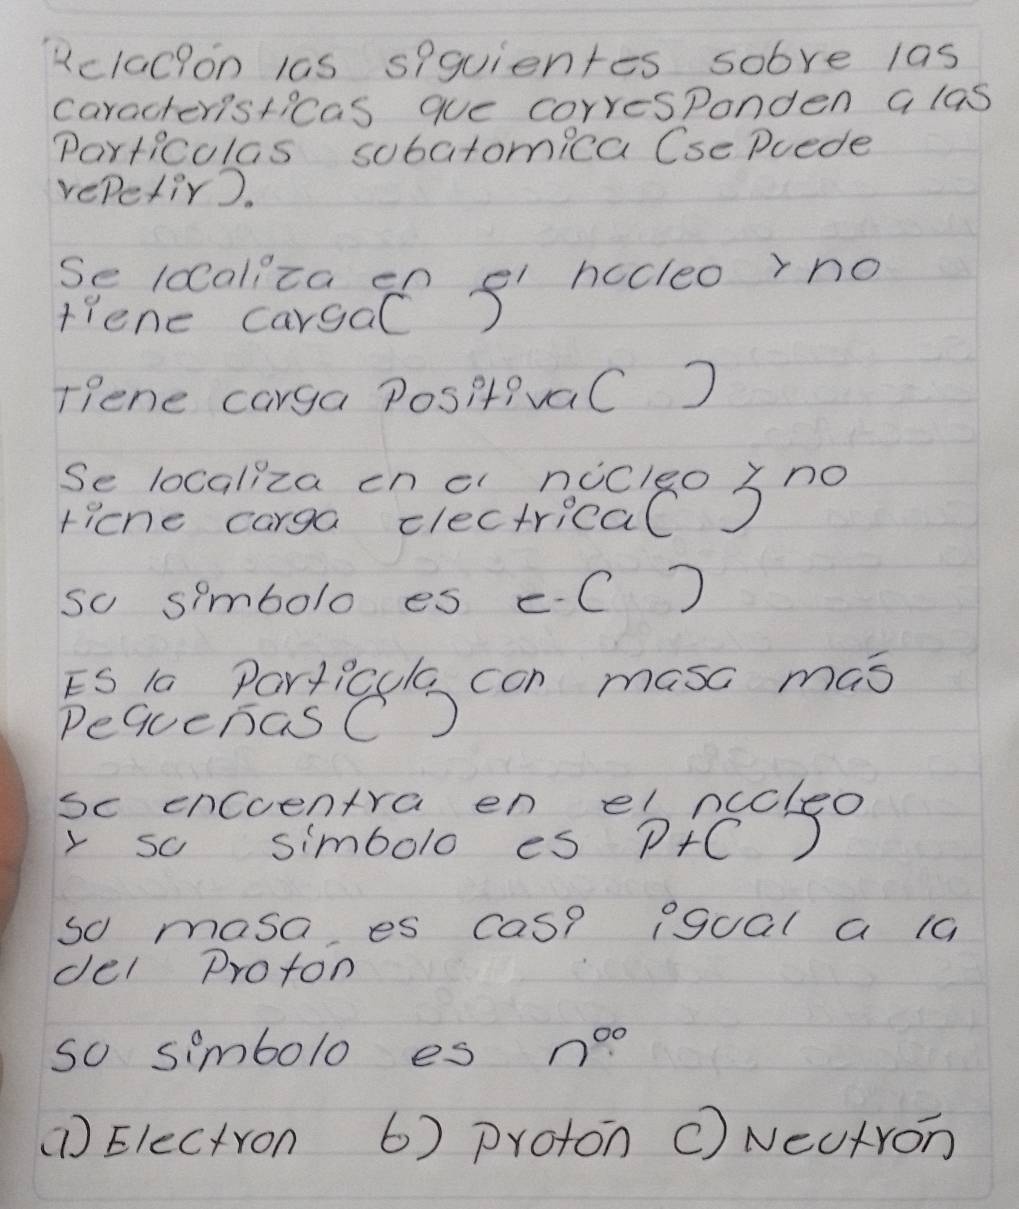 Relación las siguientes sobre las
caracteristicas que corresponden a las
Particulas subatomica (se Puede
repetir).
Se localiza en el nucleo y no
tiene carga( )
Tiene carga Positiva( )
Se localiza en el núcleo y no
tiene carga electrica( )
su simbolo es e-( )
Es la Particula con masa más
Pequeñas ( )
se encuentra en el nucleo
y su simbolo es P+( )
su masa es casi igual a la
del Proton
su simbolo es n°
a) Electron b) protón c) Neutrón